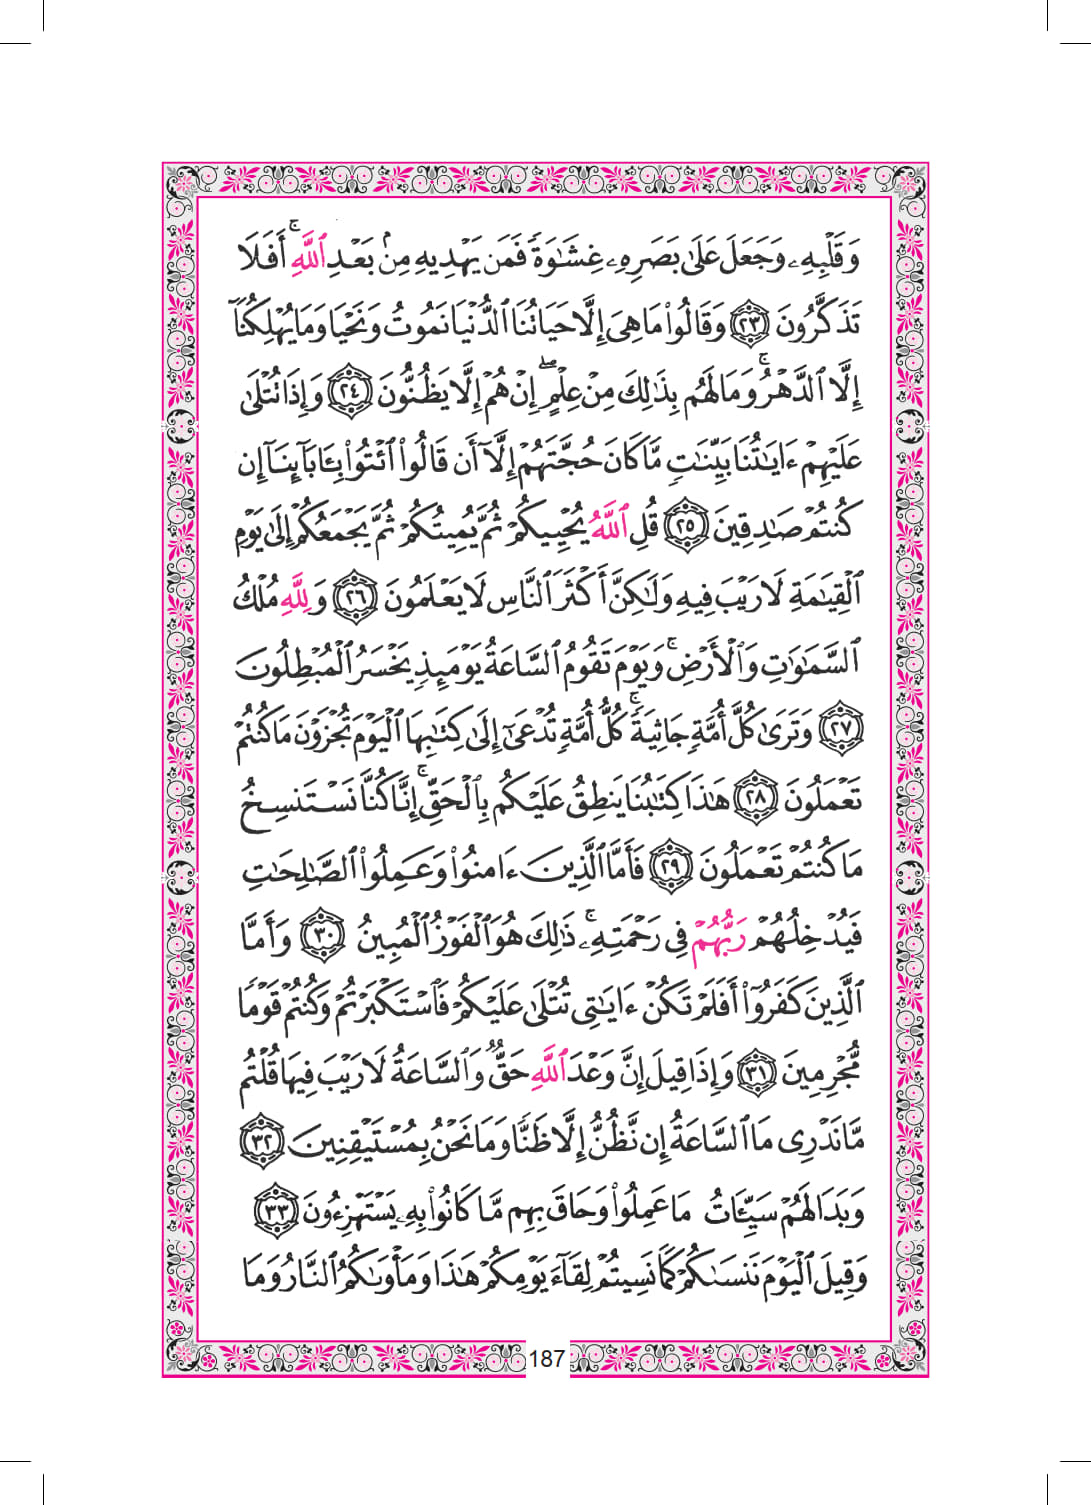 وَقَلْبِهِۦ وَجَعَلَ عَلَىٰ بَصَرِهِۦ غِشَٰوَةً فَمَن يَهْدِيهِ مِنۢ بَعْدِ ٱللَّهِ ۚ أَفَلَا
تَذَكَّرُونَ ٢٣ وَقَالُوا۟ مَا هِىَ إِلَّا حَيَاتُنَا ٱلدُّنْيَا نَمُوتُ وَنَحْيَا وَمَا يُهْلِكُنَآ
إِلَّا ٱلدَّهْرُ ۚ وَمَا لَهُم بِذَٰلِكَ مِنْ عِلْمٍ ۖ إِنْ هُمْ إِلَّا يَظُنُّونَ ٢٤ وَإِذَا تُتْلَىٰ
عَلَيْهِمْ ءَايَٰتُنَا بَيِّنَٰتٍ مَّا كَانَ حُجَّتَهُمْ إِلَّآ أَن قَالُوا۟ ٱئْتُوا۟ بِـَٔابَآئِنَآ إِن
كُنتُمْ صَٰدِقِينَ ٢٥ قُلِ ٱللَّهُ يُحْيِيكُمْ ثُمَّ يُمِيتُكُمْ ثُمَّ يَجْمَعُكُمْ إِلَىٰ يَوْمِ
ٱلْقِيَٰمَةِ لَا رَيْبَ فِيهِ وَلَٰكِنَّ أَكْثَرَ ٱلنَّاسِ لَا يَعْلَمُونَ ٢٦ وَلِلَّهِ مُلْكُ
ٱلسَّمَٰوَٰتِ وَٱلْأَرْضِ ۚ وَيَوْمَ تَقُومُ ٱلسَّاعَةُ يَوْمَئِذٍ يَخْسَرُ ٱلْمُبْطِلُونَ
٢٧ وَتَرَىٰ كُلَّ أُمَّةٍ جَاثِيَةً ۚ كُلُّ أُمَّةٍ تُدْعَىٰٓ إِلَىٰ كِتَٰبِهَا ٱلْيَوْمَ تُجْزَوْنَ مَا كُنتُمْ
تَعْمَلُونَ ٢٨ هَٰذَا كِتَٰبُنَا يَنطِقُ عَلَيْكُم بِٱلْحَقِّ ۚ إِنَّا كُنَّا نَسْتَنسِخُ
مَا كُنتُمْ تَعْمَلُونَ ٢٩ فَأَمَّا ٱلَّذِينَ ءَامَنُوا۟ وَعَمِلُوا۟ ٱلصَّٰلِحَٰتِ
فَيُدْخِلُهُمْ رَبُّهُمْ فِى رَحْمَتِهِۦ ۚ ذَٰلِكَ هُوَ ٱلْفَوْزُ ٱلْمُبِينُ ٣٠ وَأَمَّا
ٱلَّذِينَ كَفَرُوٓا۟ أَفَلَمْ تَكُنْ ءَايَٰتِى تُتْلَىٰ عَلَيْكُمْ فَٱسْتَكْبَرْتُمْ وَكُنتُمْ قَوْمًا
مُّجْرِمِينَ ٣١ وَإِذَا قِيلَ إِنَّ وَعْدَ ٱللَّهِ حَقٌّ وَٱلسَّاعَةُ لَا رَيْبَ فِيهَا قُلْتُم
مَّا نَدْرِى مَا ٱلسَّاعَةُ إِن نَّظُنُّ إِلَّا ظَنًّا وَمَا نَحْنُ بِمُسْتَيْقِنِينَ ٣٢
وَبَدَا لَهُمْ سَيِّـَٔاتُ مَا عَمِلُوا۟ وَحَاقَ بِهِم مَّا كَانُوا۟ بِهِۦ يَسْتَهْزِءُونَ ٣٣
وَقِيلَ ٱلْيَوْمَ نَنسَىٰكُمْ كَمَا نَسِيتُمْ لِقَآءَ يَوْمِكُمْ هَٰذَا وَمَأْوَىٰكُمُ ٱلنَّارُ وَمَا
187